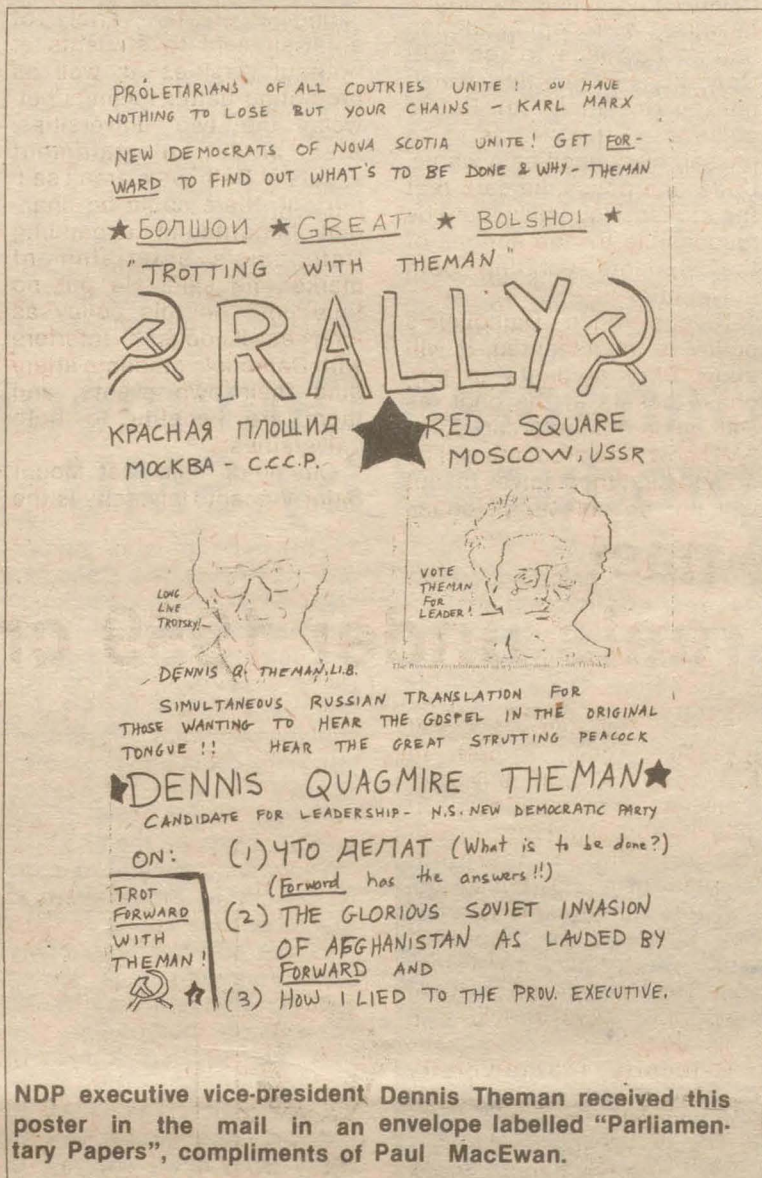 PROLETARIANS OF ALL COUTRIES UNITE! OU HAVE
NOTHING TO LOSE BUT YOUR CHAINS - KARL MARX
NEW DEMOCRATS OF NOVA SCOTIA UNITE! GET FOR-
WARD TO FIND OUT WHAT'S TO BE DONE & WHY - THEMAN
★ БОЛШОИ ★ GREAT ★ BOLSHOI ★
"TROTTING WITH THEMAN"
RALLY
КРАСНАЯ ПЛОЩИДА ★ RED SQUARE
МОСКВА - С.С.С.Р. MOSCOW, USSR
LONG
LIVE
TROTSKY!
VOTE
THEMAN
FOR
LEADER!
DENNIS Q. THEMAN, LI.B.
The Russian revolutionist
SIMULTANEOUS RUSSIAN TRANSLATION FOR
THOSE WANTING TO HEAR THE GOSPEL IN THE ORIGINAL
TONGUE!! HEAR THE GREAT STRUTTING PEACOCK
★ DENNIS QUAGMIRE THEMAN ★
CANDIDATE FOR LEADERSHIP - N.S. NEW DEMOCRATIC PARTY
ON: (1) ЧТО ДЕЛАТ (What is to be done?)
(Forward has the answers!!)
(2) THE GLORIOUS SOVIET INVASION
OF AFGHANISTAN AS LAUDED BY
FORWARD AND
(3) HOW I LIED TO THE PROV. EXECUTIVE.
TROT
FORWARD
WITH
THEMAN!
NDP executive vice-president Dennis Theman received this
poster in the mail in an envelope labelled "Parliamen-
tary Papers", compliments of Paul MacEwan.